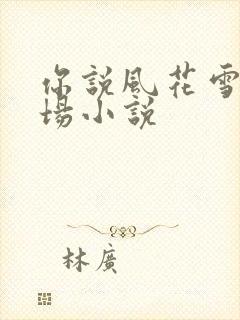 你說風花雪
場小說
林廣